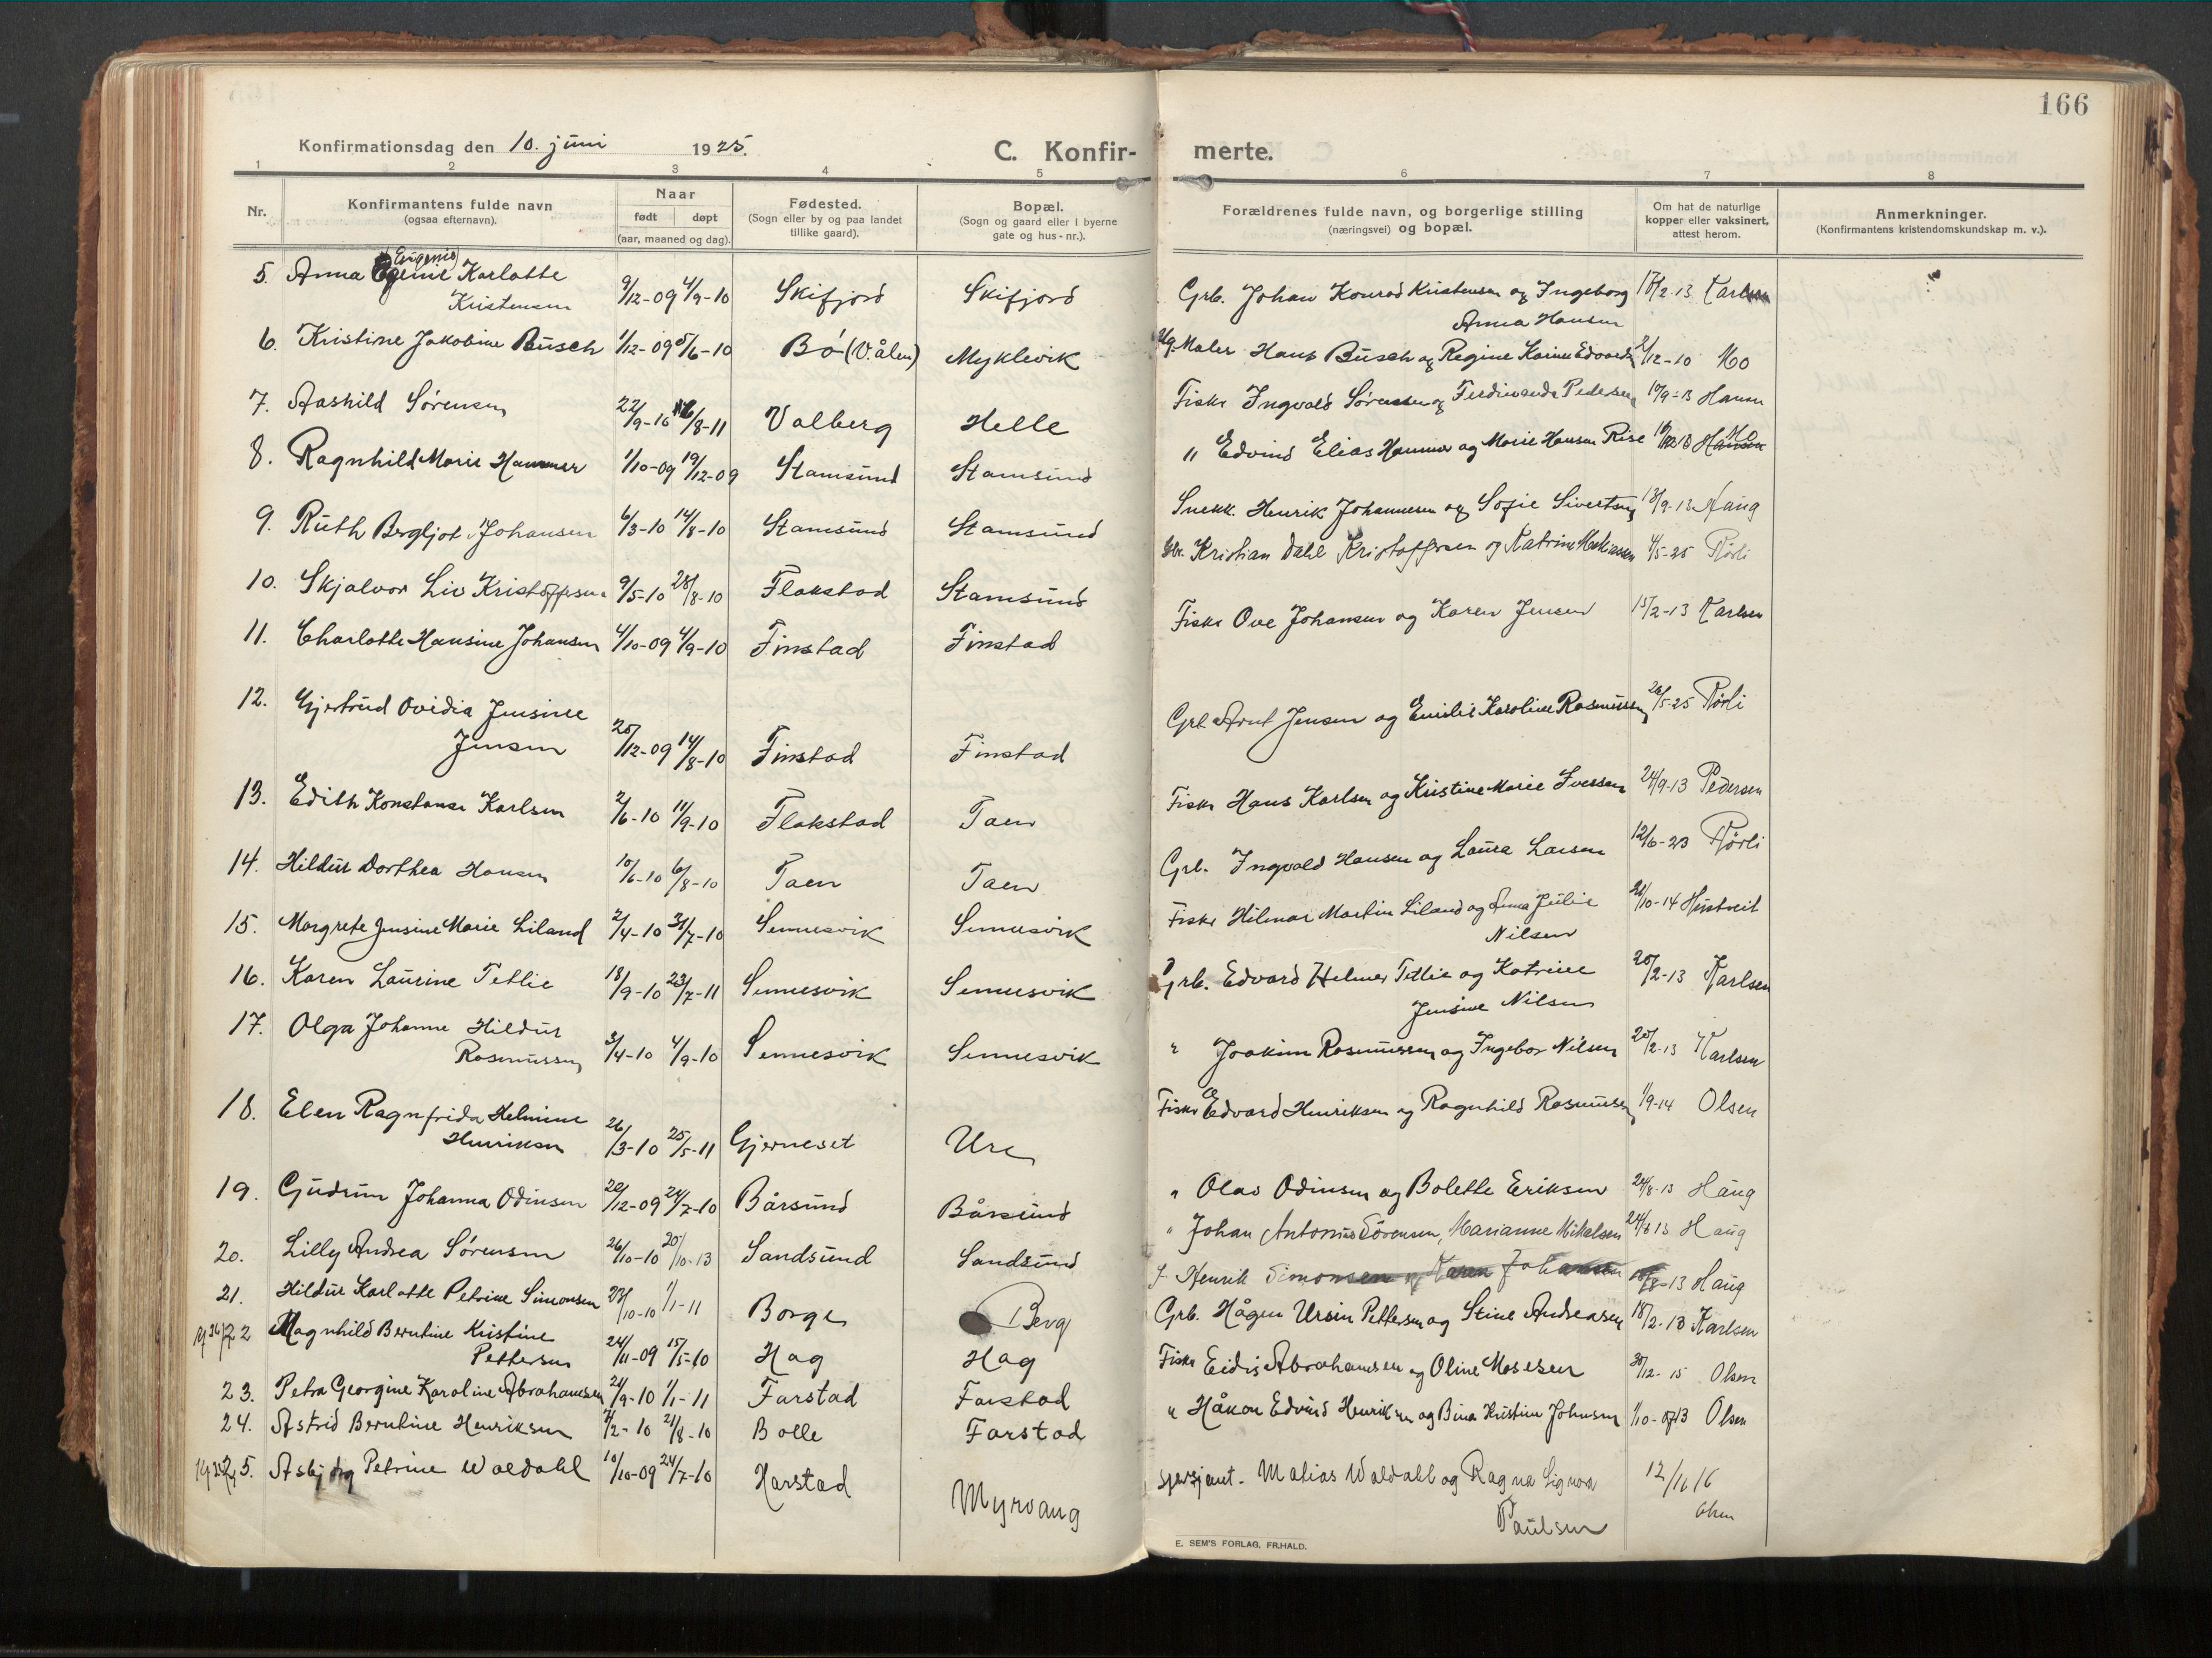 166
Konfirmationsdag den 10. juni 1925.
C. Konfir-
merte.
1 2 3 4 5 6 7 8
Nr.
Konfirmantens fulde navn
(ogsaa efternavn).
Naar
født døpt
(aar, maaned og dag).
Fødested.
(Sogn eller by og paa landet
tillike gaard).
Bopæl.
(Sogn og gaard eller i byerne
gate og hus-nr.).
Forældrenes fulde navn, og borgerlige stilling
(næringsvei) og bopæl.
Om hat de naturlige
kopper eller vaksinert,
attest herom.
Anmerkninger.
(Konfirmantens kristendomskundskap m. v.).
5. Anna Eugenie Karlotte
Kristensen 9/12-09 4/9-10 Skifjord Skifjord Grb. Johan Konrad Kristensen og Ingeborg 17/2-13 Karlsen
Anna Hansen
6. Kristine Jakobine Busch 1/12-09 5/6-10 Bø (V.ålen) Myklevik Maler Hans Busch og Regine Karine 2/12-10 Mo
7. Aashild Sørensen 22/9-10 /8-11 Valberg Helle Fisker Ingvald Sørensen og Ferdinanda Pedersen 19/9-13 Hansen
8. Ragnhild Marie Hammer 1/10-09 19/12-09 Stamsund Stamsund " Edvind Elias Hammer og Marie Hansen Rise Mo
9. Ruth Bergljot Johansen 6/3-10 14/8-10 Stamsund Stamsund Snekk. Henrik Johannesen og Sofie Sivertsen 13/9-13 Haug
10. Skjalvor Liv Kristoffersen 9/5-10 28/8-10 Flakstad Stamsund Kristian Dahl Kristoffersen og Katrine 4/5-25 Rørli
11. Charlotte Hansine Johansen 4/10-09 4/9-10 Finstad Finstad Fisker Ove Johansen og Karen Jensen 15/2-13 Karlsen
12. Gjertrud Ovidia Jensine
Jensen 25/12-09 14/8-10 Finstad Finstad Grb. Arnt Jensen og Emilie Karoline Rasmussen 26/5-25 Rørli
13. Edith Konstanse Karlsen 2/6-10 11/9-10 Flakstad Taen Fisker Hans Karlsen og Kristine Marie Ivessen 24/9-13 Pedersen
14. Hildur Dorthea Hansen 10/6-10 6/8-10 Taen Taen Grb. Ingvald Hansen og Laura Larsen 12/6-23 Rørli
15. Margrete Jensine Marie Liland 2/4-10 31/7-10 Sennesvik Sennesvik Fisker Hilmar Martin Liland og Anna Julie 21/10-14 Hustveit
Nilsen
16. Karen Laurine Tetlie 18/9-10 23/7-11 Sennesvik Sennesvik Grb. Edvard Helmer Tetlie og Katrine 20/2-13 Karlsen
Jensine Nilsen
17. Olga Johanne Hildur
Rasmussen 3/4-10 4/9-10 Sennesvik Sennesvik " Joakim Rasmussen og Ingebor Nilsen 20/2-13 Karlsen
18. Elen Ragnfrida Helmine
Henriksen 26/3-10 25/5-11 Gjerneset Ure Fisker Edvard Henriksen og Ragnhild Rasmussen 1/9-14 Olsen
19. Gudrun Johanna Odinsen 20/12-09 24/7-10 Bårsund Bårsund " Olav Odinsen og Bolette Eriksen 24/8-13 Haug
20. Lilly Andrea Sørensen 26/10-10 20/10-13 Sandsund Sandsund " Johan Antonius Sørensen, Marianne Mikalsen 24/8 13 Haug
21. Hildur Karlotte Petrine Simonsen 23/10-10 1/1-11 Borge Berg f. Henrik Simonsen og Karen Johansen /8-13 Haug
22 Magnhild Berntine Kristine
Pettersen 24/11-09 15/5-10 Hag Hag Grb. Hågen Ursin Pettersen og Stine Andreasen 18/2-13 Karlsen
23. Petra Georgine Karoline Abrahamsen 21/9-10 1/1-11 Farstad Farstad Fisker Eidis Abrahamsen og Oline Mosesen 30/12-15 Olsen
24. Astrid Berntine Henriksen 7/2-10 21/8-10 Bolle Farstad " Håkon Edvind Henriksen og Bina Kristine Johnsen 1/10-13 Olsen
25. Asbjørg Petrine Waldahl 10/10-09 24/7-10 Harstad Myrvang Sersjant. Matias Waldahl og Ragna Signora 12/11 16
Paulsen Olsen
E. SEM'S FORLAG, FR.HALD.